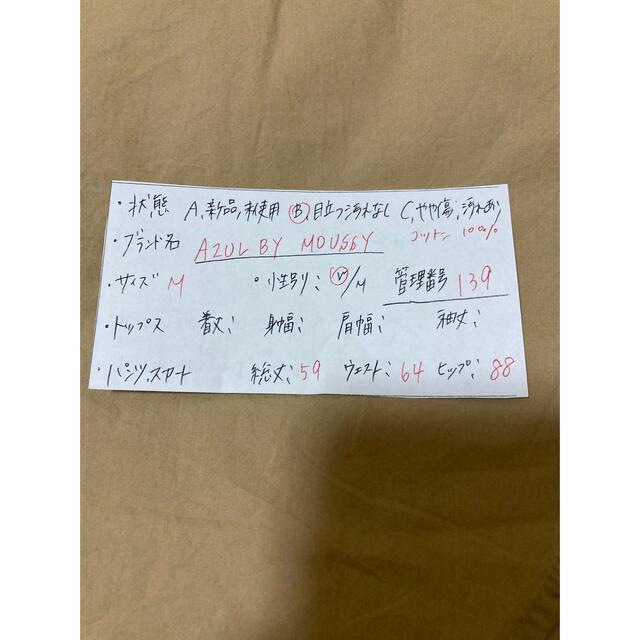 ・状態 A,新品,未使用 B,目立つ汚れなし C,やや傷,汚れあり
・ブランド名 AZUL BY MOUSSY コットン 100%
・サイズ M ・性別: /M 管理番号 139
・トップス 着丈: 身幅: 肩幅: 袖丈:
・パンツ,スカート 総丈:59 ウエスト:64 ヒップ:88